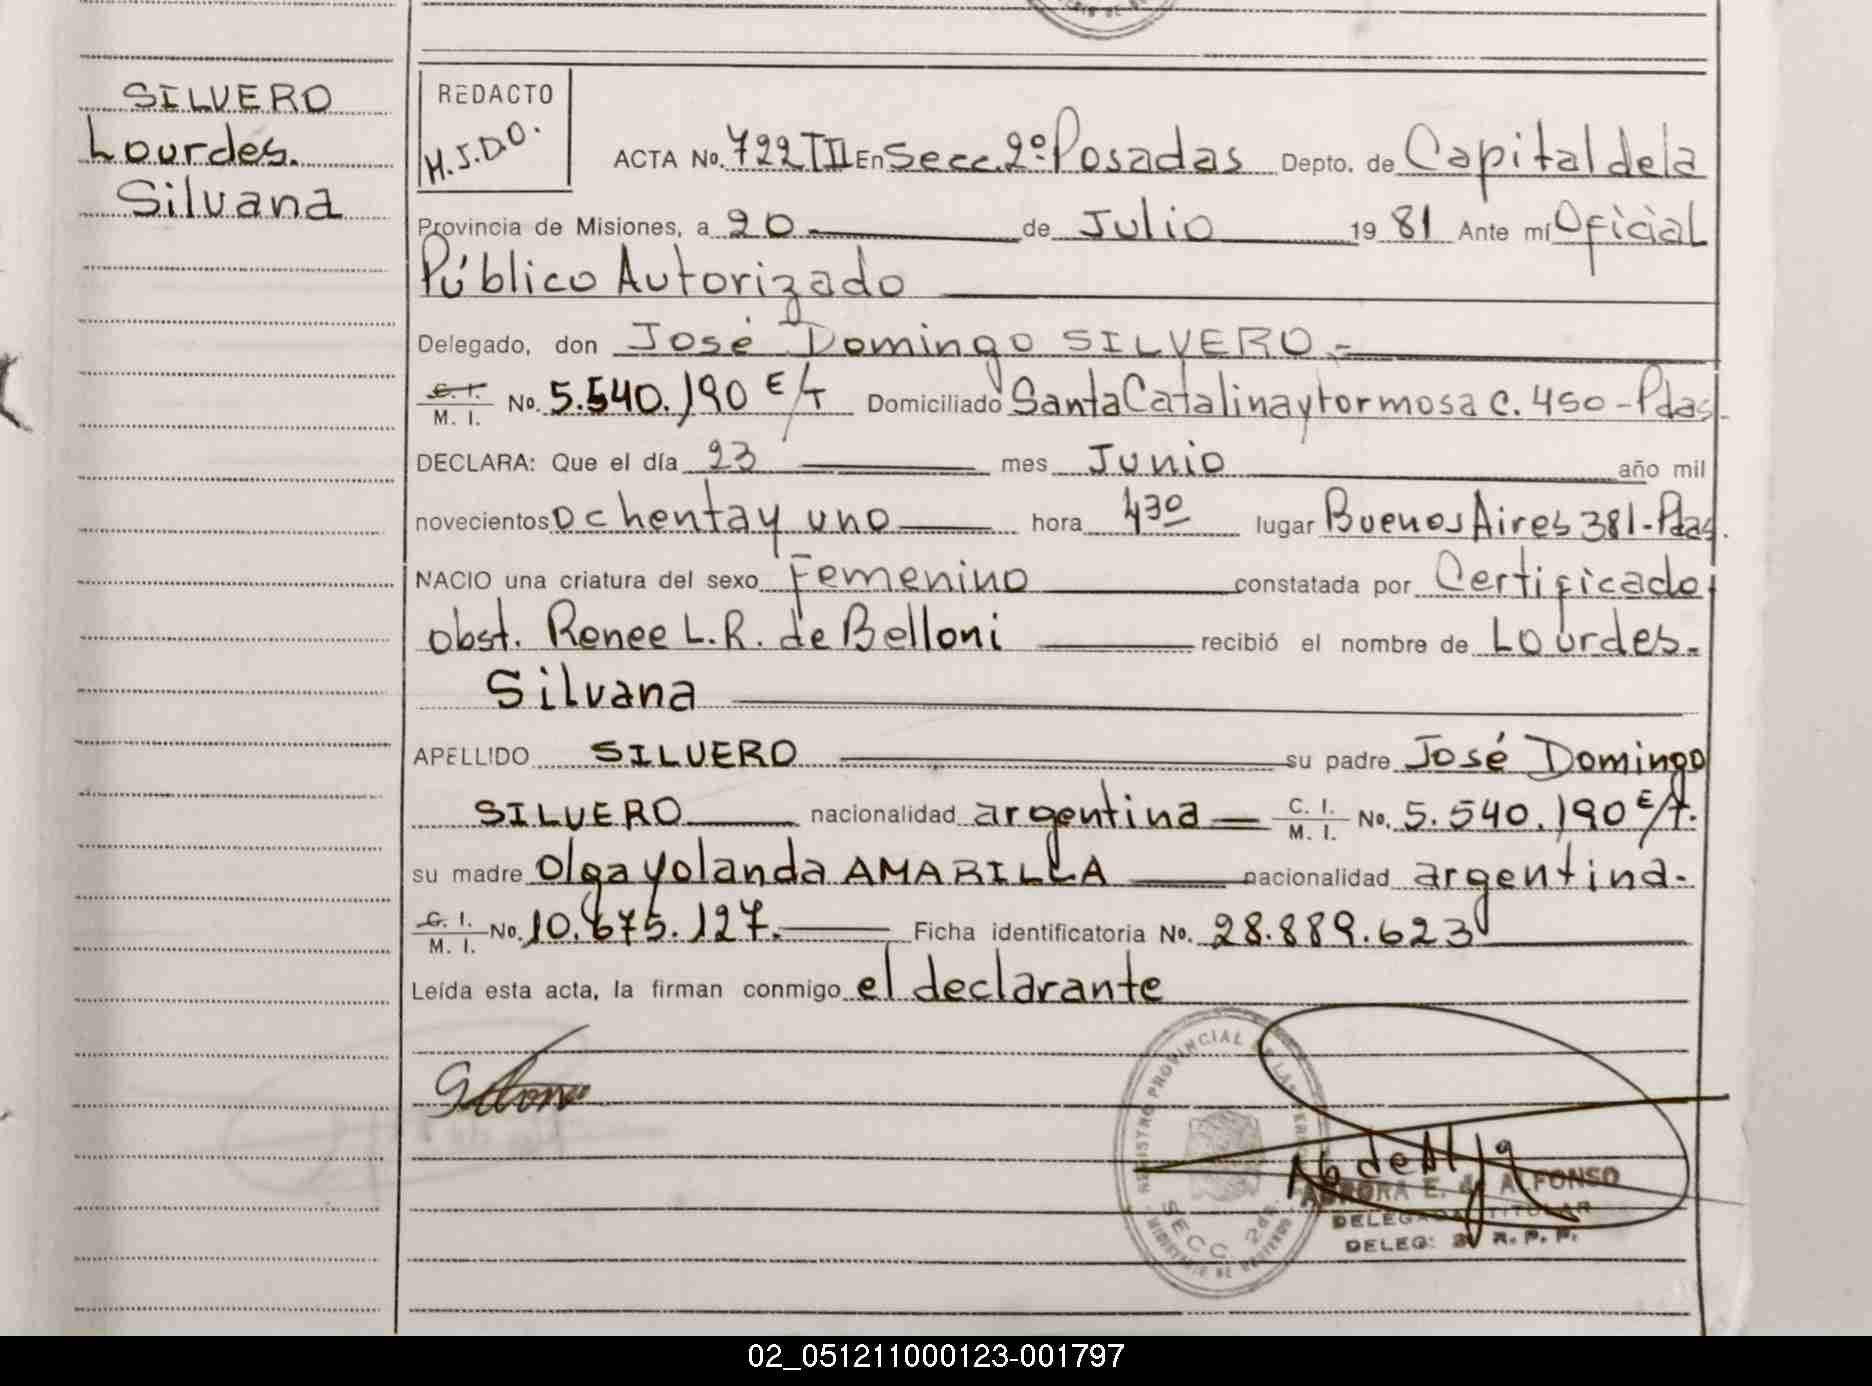 SILVERO
Lourdes.
Silvana
REDACTO
M.J.D.O.
ACTA No. 722 TII En Secc. 2º Posadas Depto. de Capital de la
Provincia de Misiones, a 20 de Julio 19 81 Ante mí Oficial
Público Autorizado
Delegado, don José Domingo SILVERO.-
C. I. / M. I. No. 5.540.190 E/T Domiciliado Santa Catalina y formosa c. 450 - Pdas.
DECLARA: Que el día 23 mes Junio año mil
novecientos ochenta y uno hora 4 30 lugar Buenos Aires 381 - Pdas.
NACIO una criatura del sexo Femenino constatada por Certificado
obst. Renee L. R. de Belloni recibió el nombre de Lourdes.
Silvana
APELLIDO SILVERO su padre José Domingo
SILVERO nacionalidad argentina C. I. / M. I. No. 5.540.190 E/t.
su madre Olga yolanda AMARILLA nacionalidad argentina.
C. I. / M. I. No. 10.675.127. Ficha identificatoria No. 28.889.623
Leída esta acta, la firman conmigo el declarante
REGISTRO PROVINCIAL DE LAS PERSONAS
SECC. 2da.
MINISTERIO DE GOBIERNO
AURORA E. de ALFONSO
DELEGADA TITULAR
DELEG: 2 R. P. P.
02_051211000123-001797